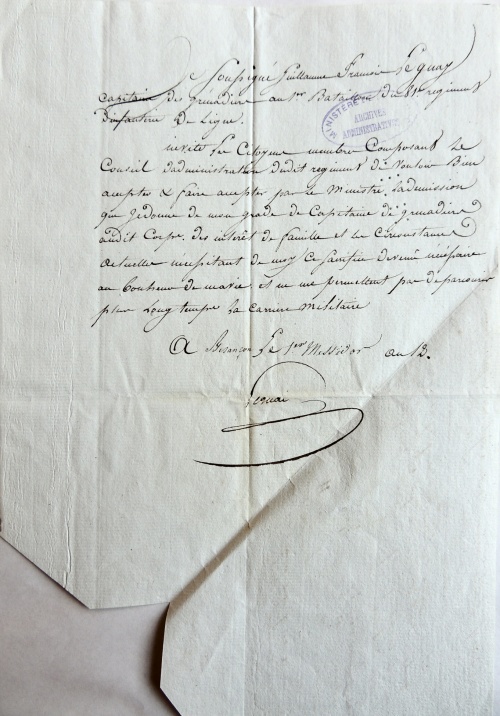 Soussigné Guillaume Francois Lequay
capitaine des grenadiers au 1er Bataillon du regiment
d'infanterie de Ligne.
MINISTERE
ARCHIVES
ADMINISTRATIVES
invite les Citoyens membre Composant le
Conseil dadministration dudit regiment de vouloir Bien
accepter & faire accepter par le Ministre. La demission
que Jedonne de mon grade de Capitaine de grenadiers
audit Corps. des interêt de famille et les Circonstances
actuelle necessitant de moy Ce Sacrifice devenu nécéssaire
au bonheur de ma vie et ne me permettent pas de parcourir
plus Long temps la Carriere militaire
A Besançon Le 1er Messidor an 12.
Lequai